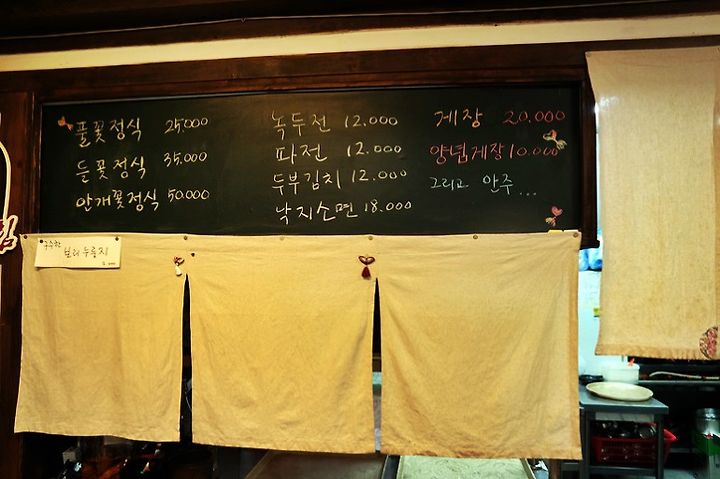 풀꽃정식 25.000
들꽃정식 35.000
안개꽃정식 50.000
녹두전 12.000
파전 12.000
두부김치 12.000
낙지소면 18.000
게장 20.000
양념게장 10.000
그리고 안주...
구수한
보리누룽지